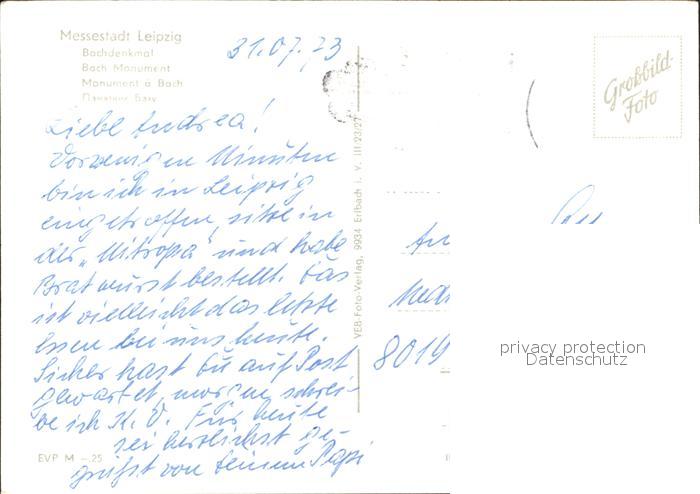 Messestadt Leipzig
Bachdenkmal
Bach Monument
Monument á Bach
Памятник Баху
31.07.73
Großbild-
Foto
Liebe Andrea!
Vor wenigen Minuten
bin ich in Leipzig
eingetroffen, sitze in
der „Mitropa" und habe
Bratwurst bestellt. Das
ist vielleicht das letzte
Essen bei uns heute.
Sicher hast Du auf Post
gewartet, morgen schrei-
be ich K. V. Für heute
sei herzlichst ge-
grüßt von Deinem Papi
VEB-Foto-Verlag, 9934 Erlbach i. V. III/23/27
An
8019
privacy protection
Datenschutz
EVP M -.25